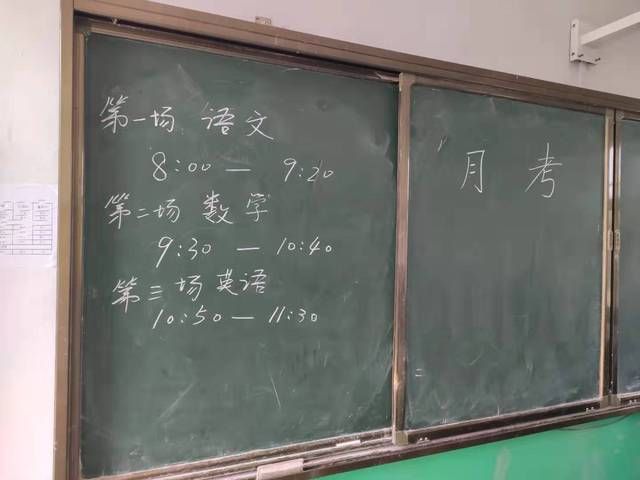 第一场 语文
8:00 — 9:20
第二场 数学
9:30 — 10:40
第三场 英语
10:50 — 11:30
月考